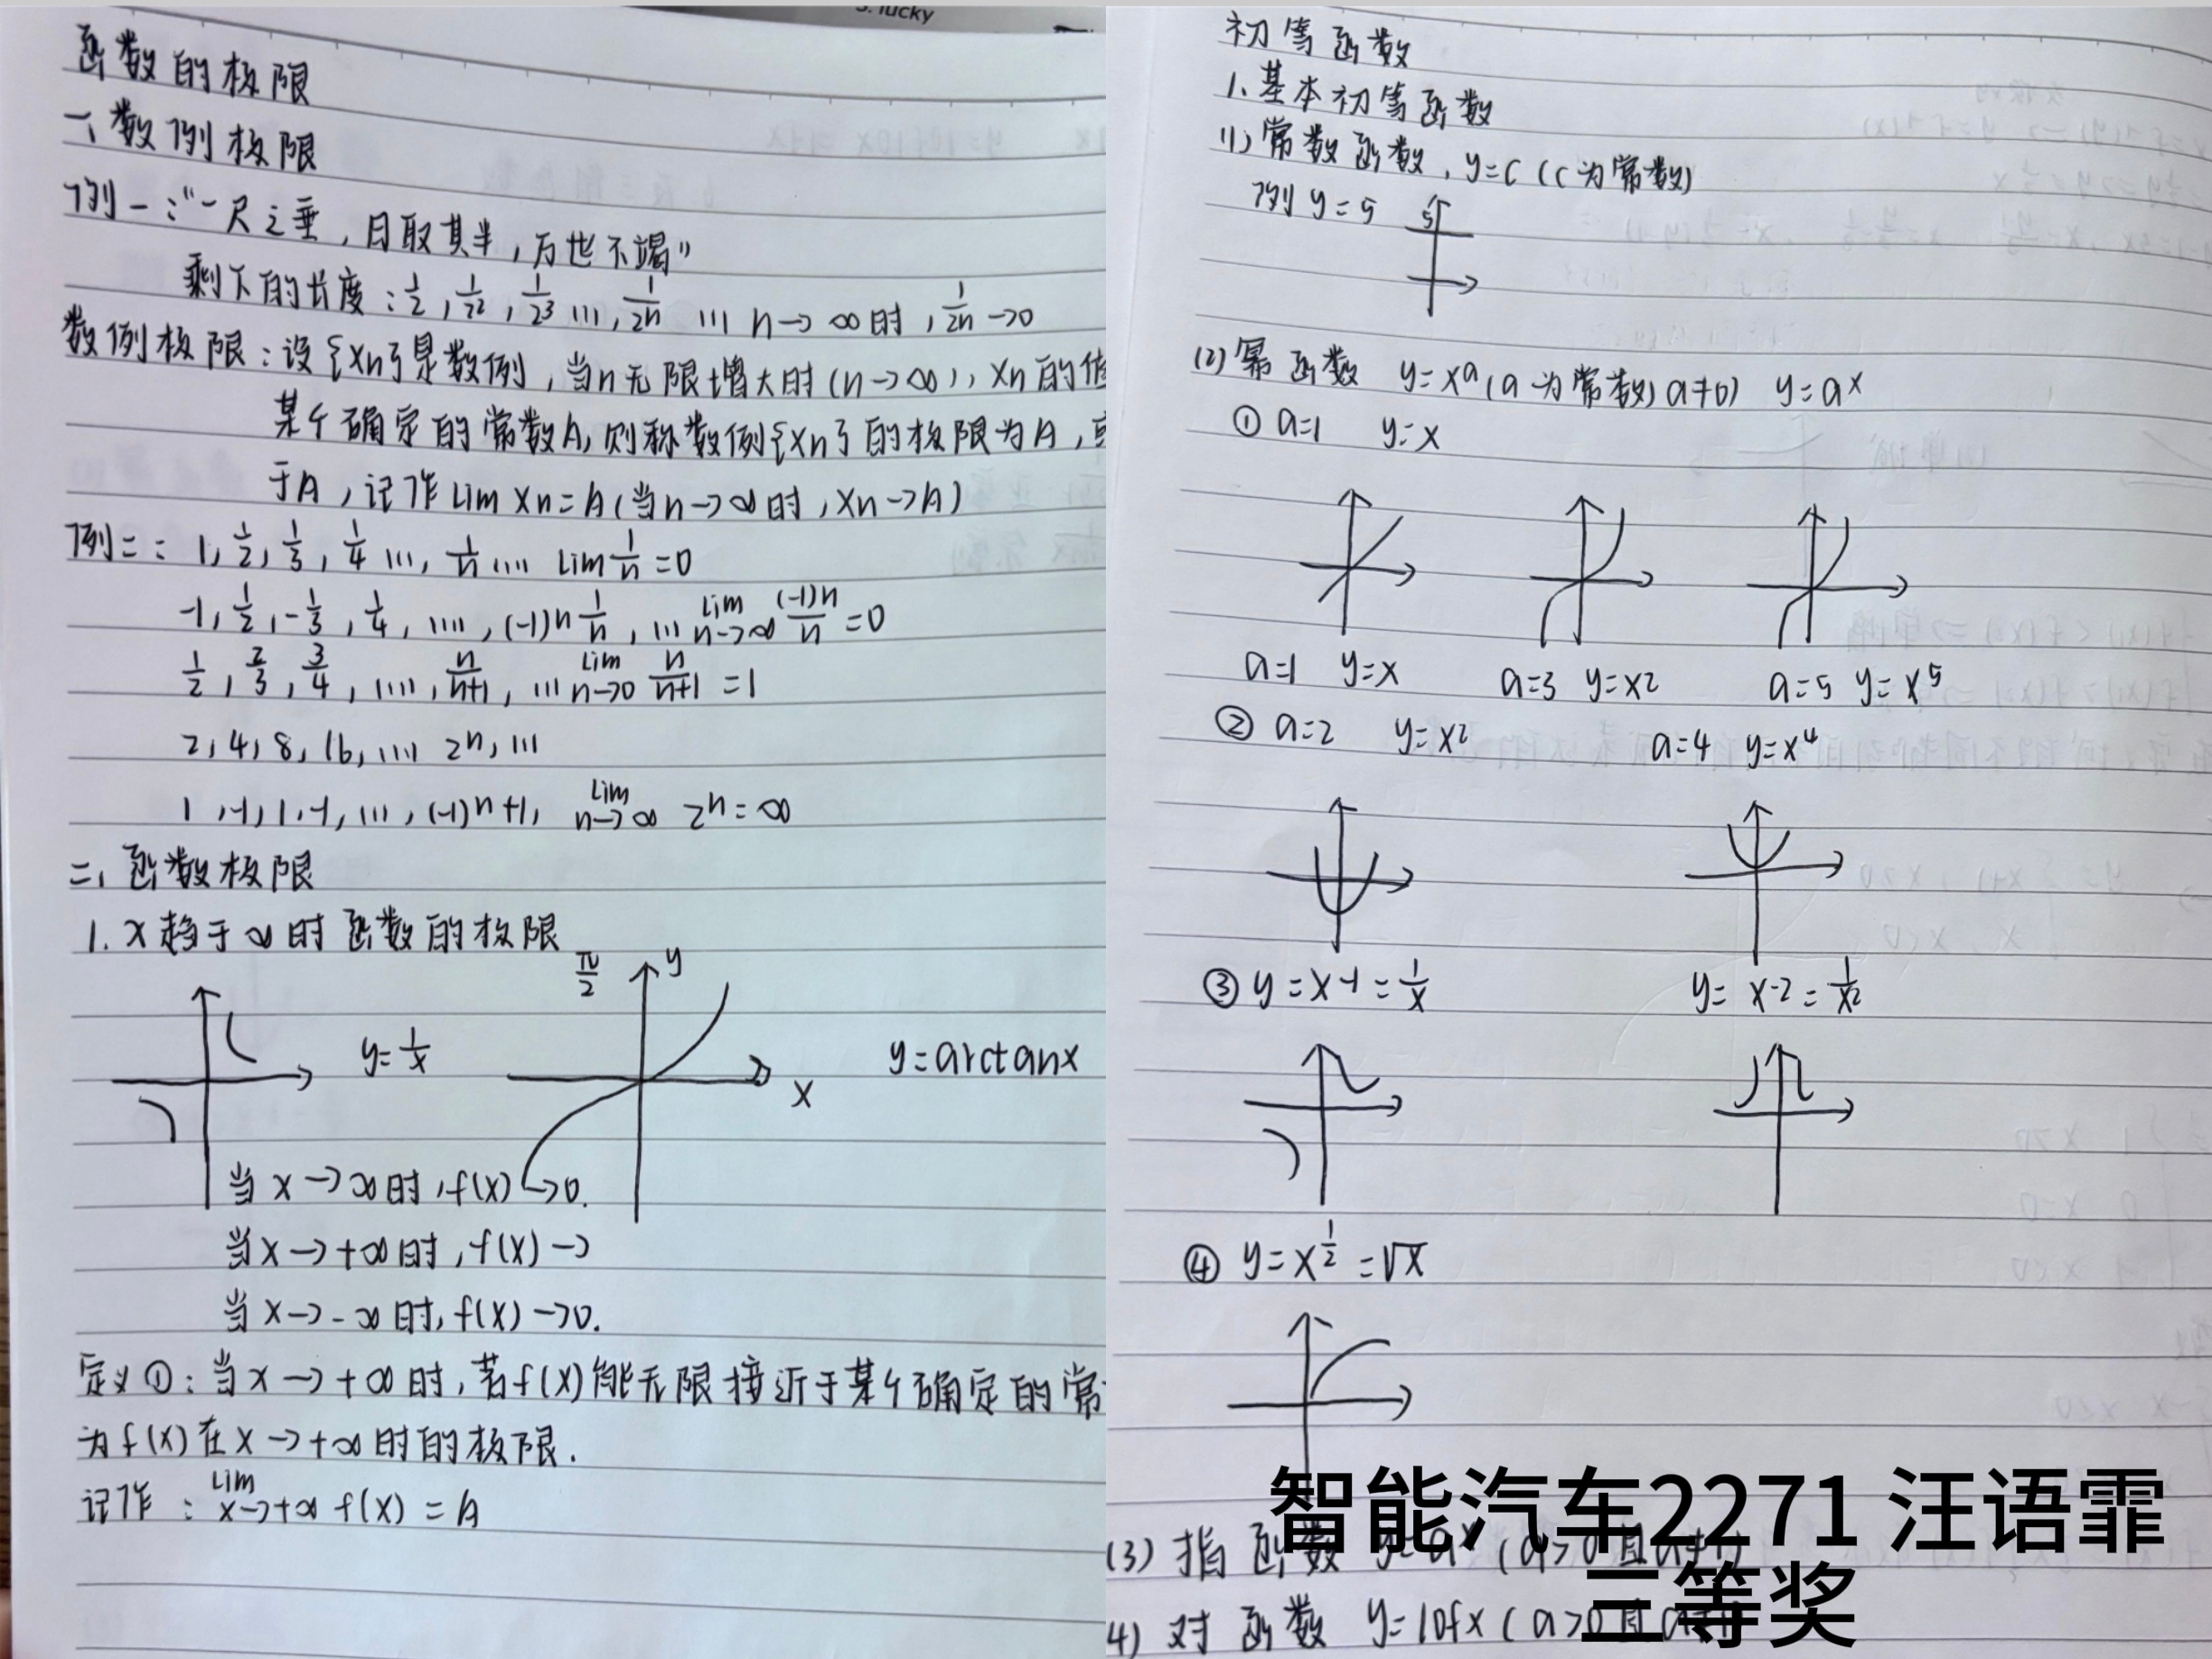 5. lucky
函数的极限
一、数列极限
例一:"一尺之垂,日取其半,万世不竭"
剩下的长度:1/2, 1/2², 1/2³ …, 1/2n … n→∞时, 1/2n→0
数列极限:设{xn}是数列,当n无限增大时(n→∞), xn的值
某个确定的常数A,则称数列{xn}的极限为A,
于A,记作lim xn=A(当n→∞时,xn→A)
例二:1, 1/2, 1/3, 1/4 …, 1/n … lim 1/n=0
-1, 1/2, -1/3, 1/4, …, (-1)n 1/n, … lim n→∞ (-1)n/n =0
1/2, 2/3, 3/4, …, n/n+1, … lim n→0 n/n+1 =1
2, 4, 8, 16, … 2ⁿ, …
1, -1, 1, -1, …, (-1)ⁿ+1, lim n→∞ 2ⁿ=∞
二、函数极限
1. x趋于∞时函数的极限
π/2 y
y=1/x
y=arctanx
x
当x→∞时,f(x)→0.
当x→+∞时,f(x)→
当x→-∞时,f(x)→0.
定义①:当x→+∞时,若f(x)能无限接近于某个确定的常
为f(x)在x→+∞时的极限.
记作: lim x→+∞ f(x)=A
初等函数
1、基本初等函数
(1)常数函数,y=c(c为常数)
例y=5
5
(2)幂函数 y=xᵃ(a为常数)a≠0) y=aˣ
①a=1 y=x
a=1 y=x a=3 y=x2 a=5 y=x⁵
②a=2 y=x² a=4 y=x⁴
③y=x-1=1/x y=x-2=1/x²
④y=x^1/2=√x
智能汽车2271 汪语霏
(3)指函数 y=aˣ(a>0且a≠1)
三等奖
4)对函数 y=10fx(a>0且a≠1)